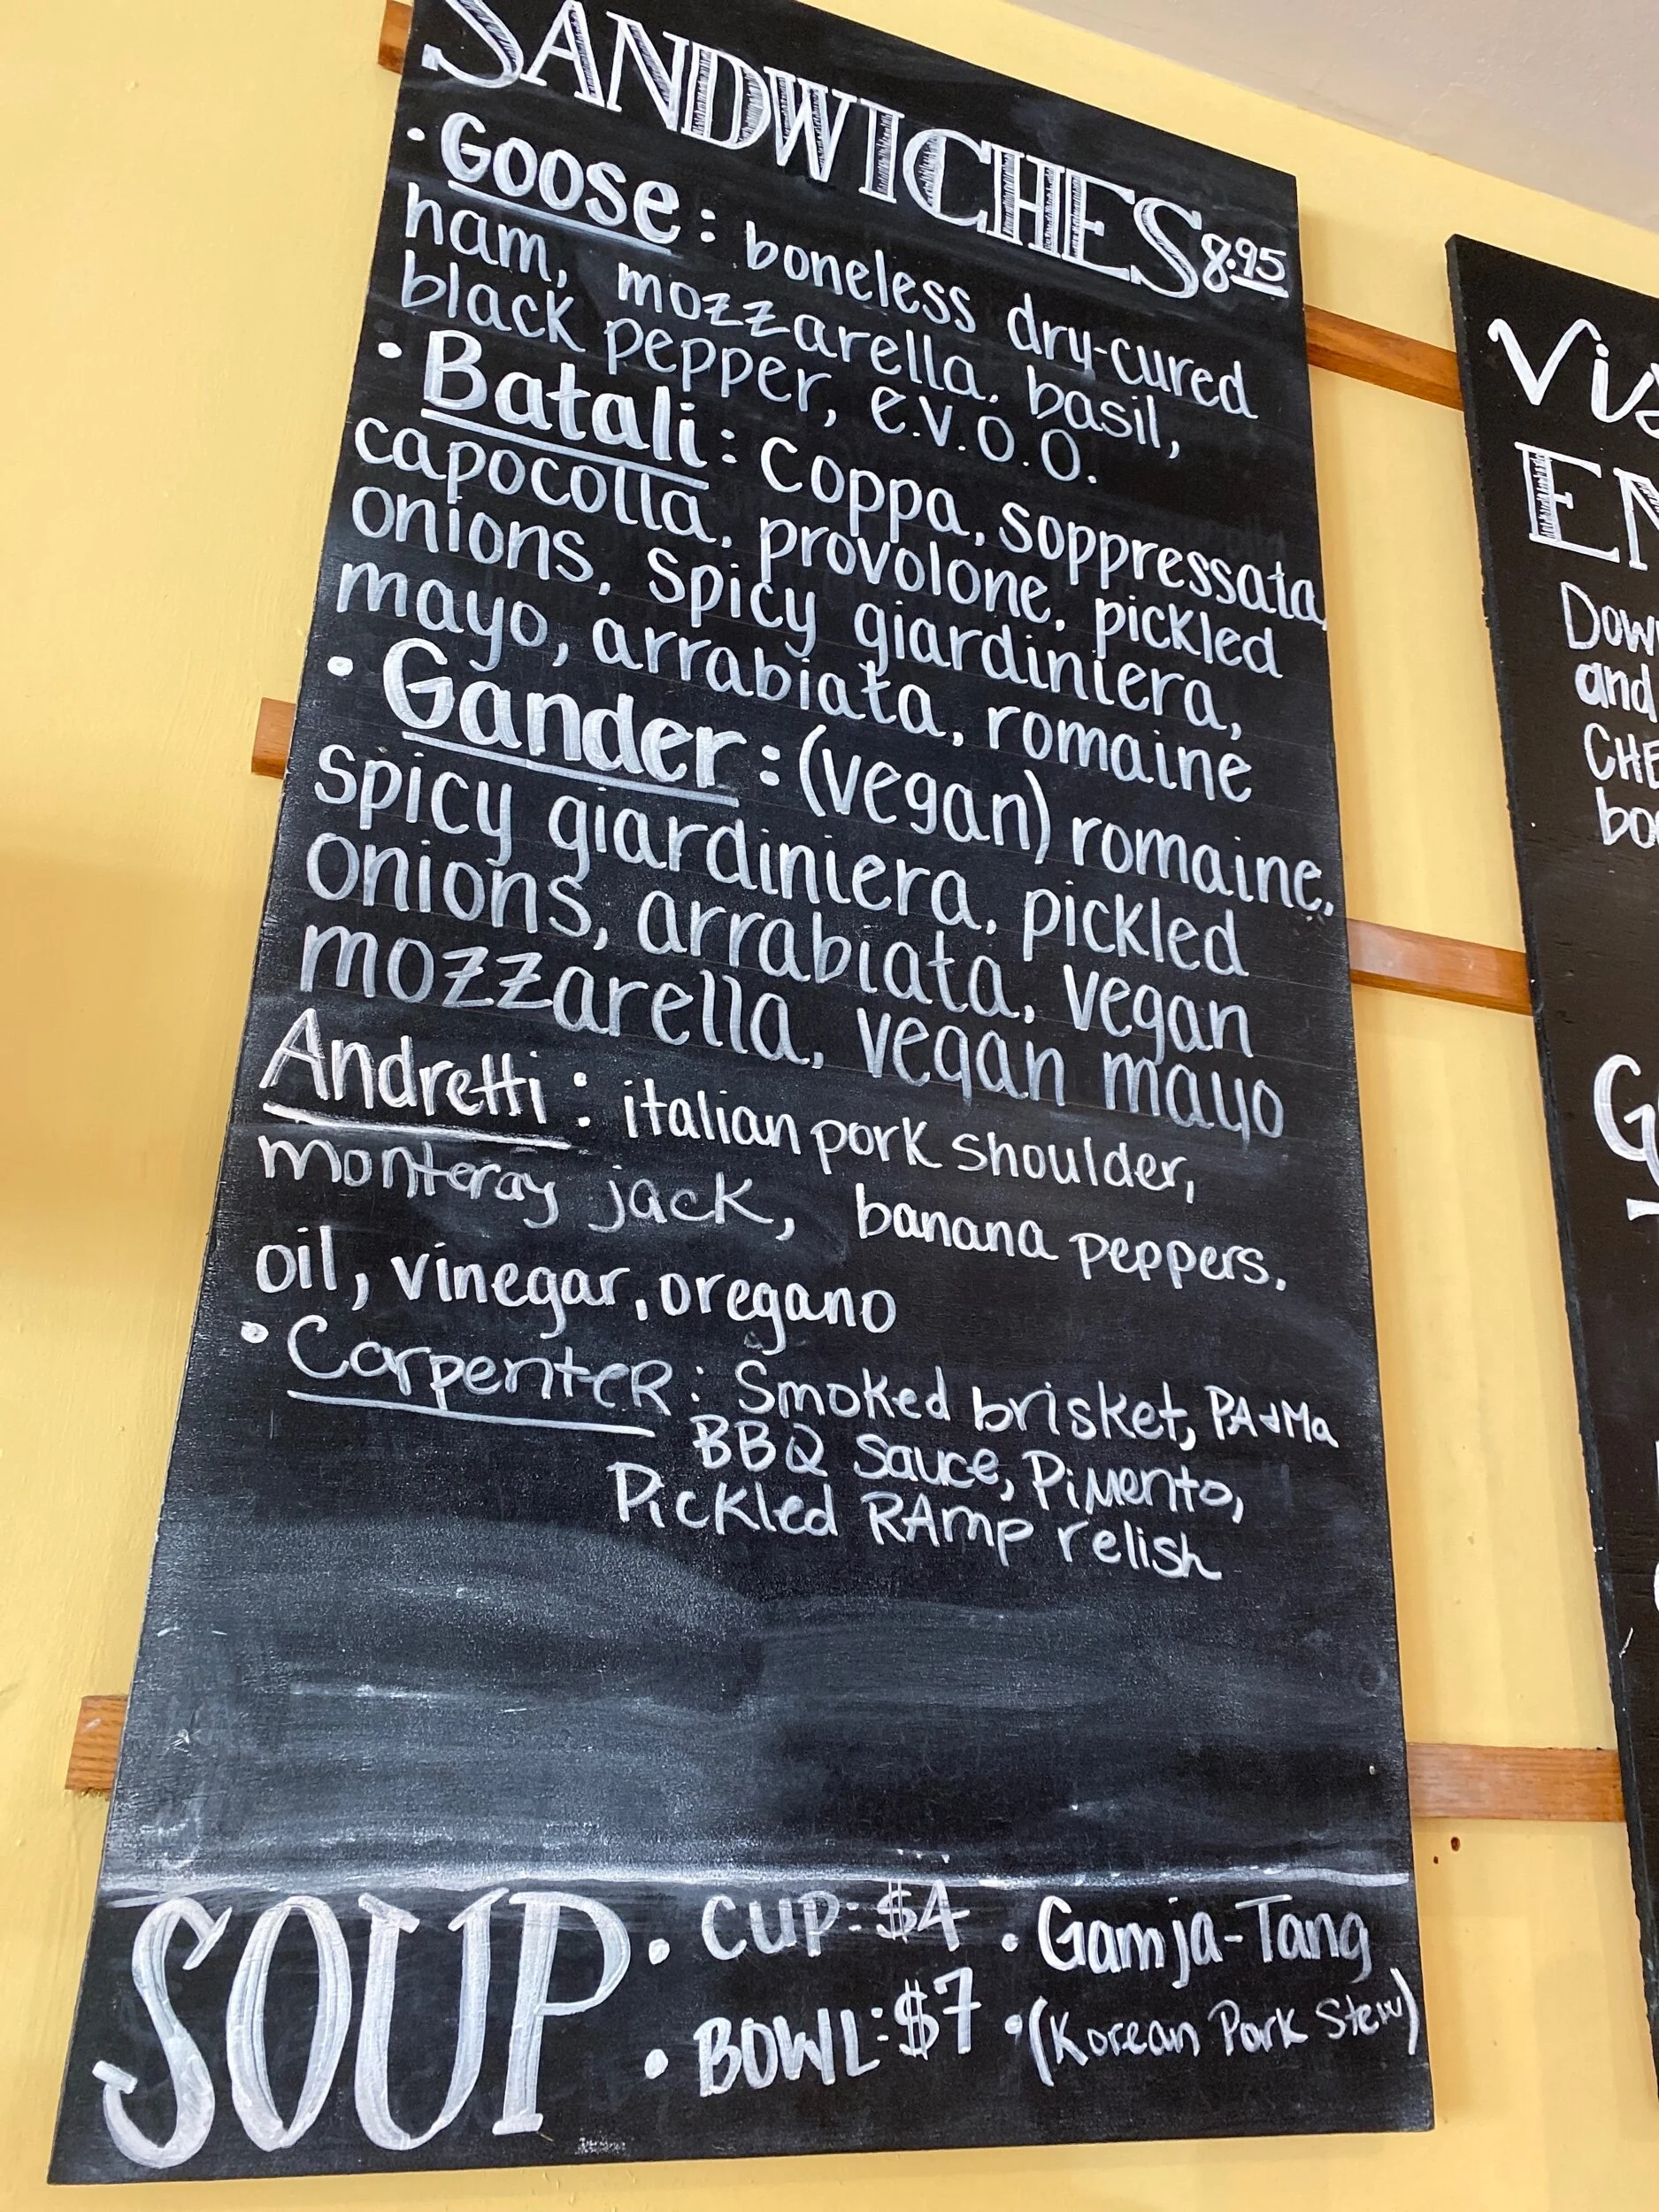 SANDWICHES 8.95
• Goose: boneless dry-cured
ham, mozzarella, basil,
black pepper, e.v.o.o.
• Batali: coppa, soppressata,
capocolla, provolone, pickled
onions, spicy giardiniera,
mayo, arrabiata, romaine
• Gander: (vegan) romaine,
spicy giardiniera, pickled
onions, arrabiata, vegan
mozzarella, vegan mayo
Andretti: italian pork shoulder,
monteray jack, banana peppers,
oil, vinegar, oregano
• Carpenter: Smoked brisket, PA & Ma
BBQ sauce, Pimento,
Pickled RAmp relish
SOUP • CUP: $4 • Gamja-Tang
• BOWL: $7 • (Korean Pork Stew)
and